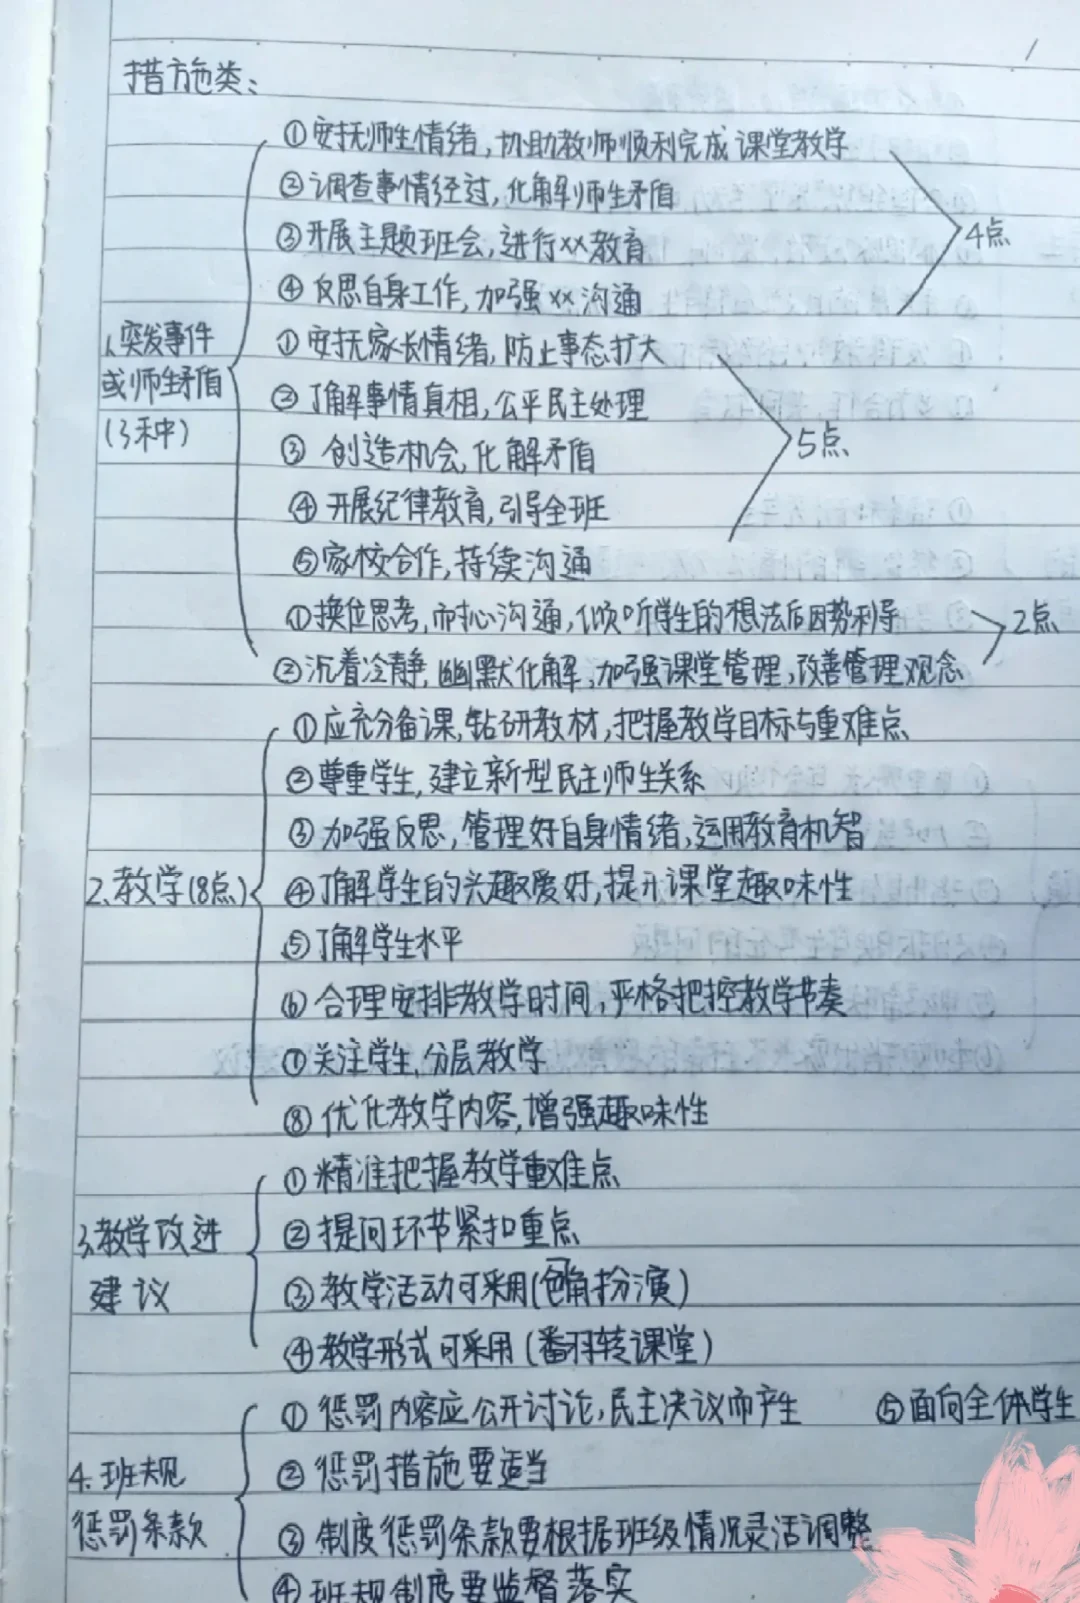 措施类:
1.突发事件或师生矛盾(3种)
①安抚师生情绪,协助教师顺利完成课堂教学
②调查事情经过,化解师生矛盾
③开展主题班会,进行××教育
④反思自身工作,加强××沟通
4点
①安抚家长情绪,防止事态扩大
②了解事情真相,公平民主处理
③创造机会,化解矛盾
④开展纪律教育,引导全班
⑤家校合作,持续沟通
5点
①换位思考,耐心沟通,倾听学生的想法后因势利导
②沉着冷静,幽默化解,加强课堂管理,改善管理观念
2点
2.教学(8点)
①应充分备课,钻研教材,把握教学目标与重难点
②尊重学生,建立新型民主师生关系
③加强反思,管理好自身情绪,运用教育机智
④了解学生的兴趣爱好,提示课堂趣味性
⑤了解学生水平
⑥合理安排教学时间,严格把控教学节奏
⑦关注学生,分层教学
⑧优化教学内容,增强趣味性
3.教学改进建议
①精准把握教学重难点
②提问环节紧扣重点
③教学活动可采用(角色扮演)
④教学形式可采用(翻转课堂)
4.班规惩罚条款
①惩罚内容应公开讨论,民主决议而产生 ⑤面向全体学生
②惩罚措施要适当
③制度惩罚条款要根据班级情况灵活调整
④班规制度要监督落实